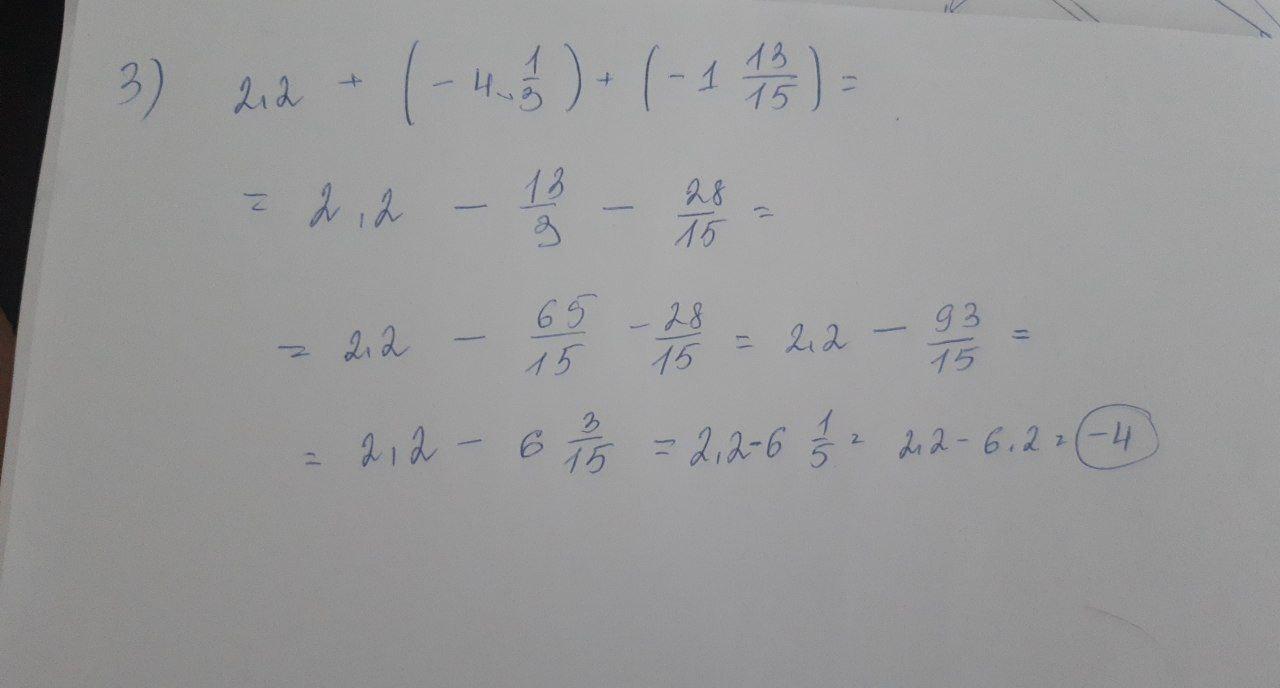 3) 2,2 + (- 4 1/3) + (- 1 13/15) =
= 2,2 - 13/3 - 28/15 =
= 2,2 - 65/15 - 28/15 = 2,2 - 93/15 =
= 2,2 - 6 3/15 = 2,2 - 6 1/5 = 2,2 - 6.2 = -4